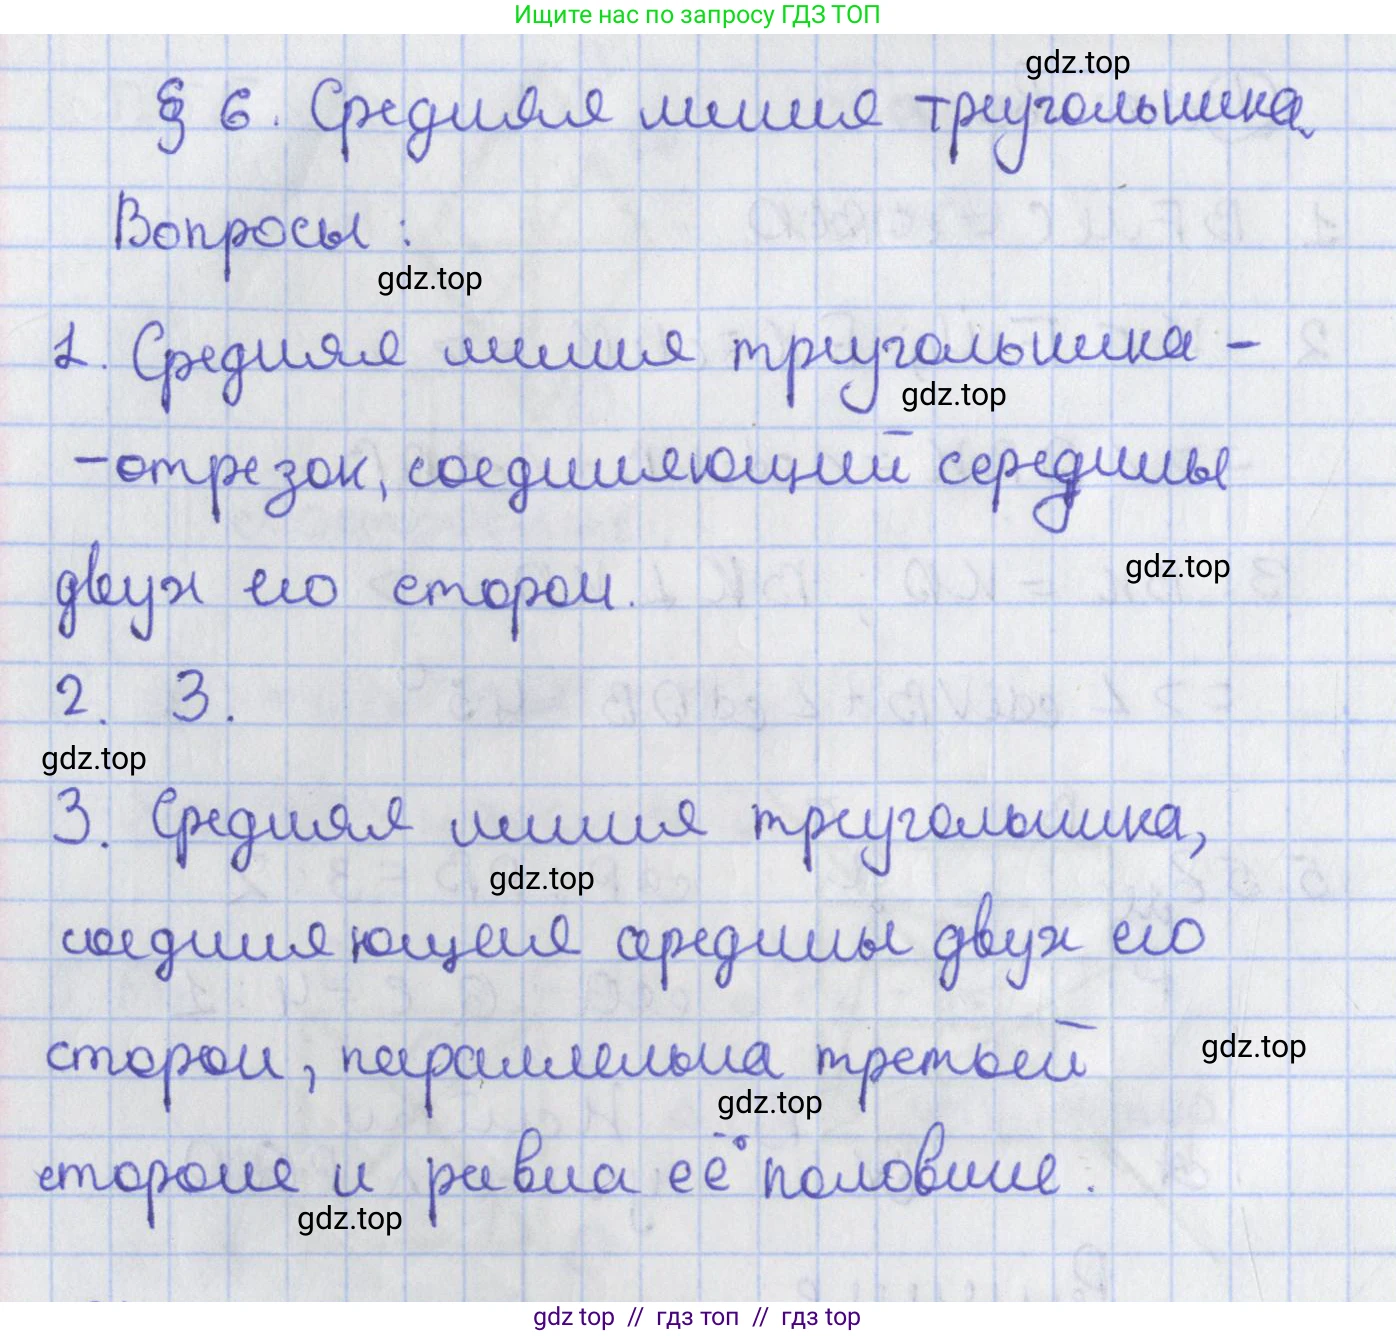 Ищите нас по запросу ГДЗ ТОП
gdz.top
§ 6. Средняя линия треугольника
Вопросы:
gdz.top
1. Средняя линия треугольника -
gdz.top
- отрезок, соединяющий середины
gdz.top
двух его сторон.
2. 3.
gdz.top
3. Средняя линия треугольника,
gdz.top
соединяющая середины двух его
сторон, параллельна третьей
gdz.top
gdz.top
стороне и равна её половине.
gdz.top
gdz top // гдз топ // гдз top